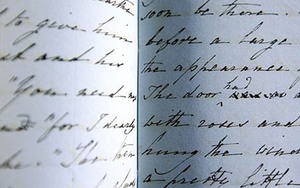 to give him
at and his
"You need my
and "for I dearly
be." The
soon be there.
before a large
the appearance
The door had
with roses and
hung the wind
a pretty little